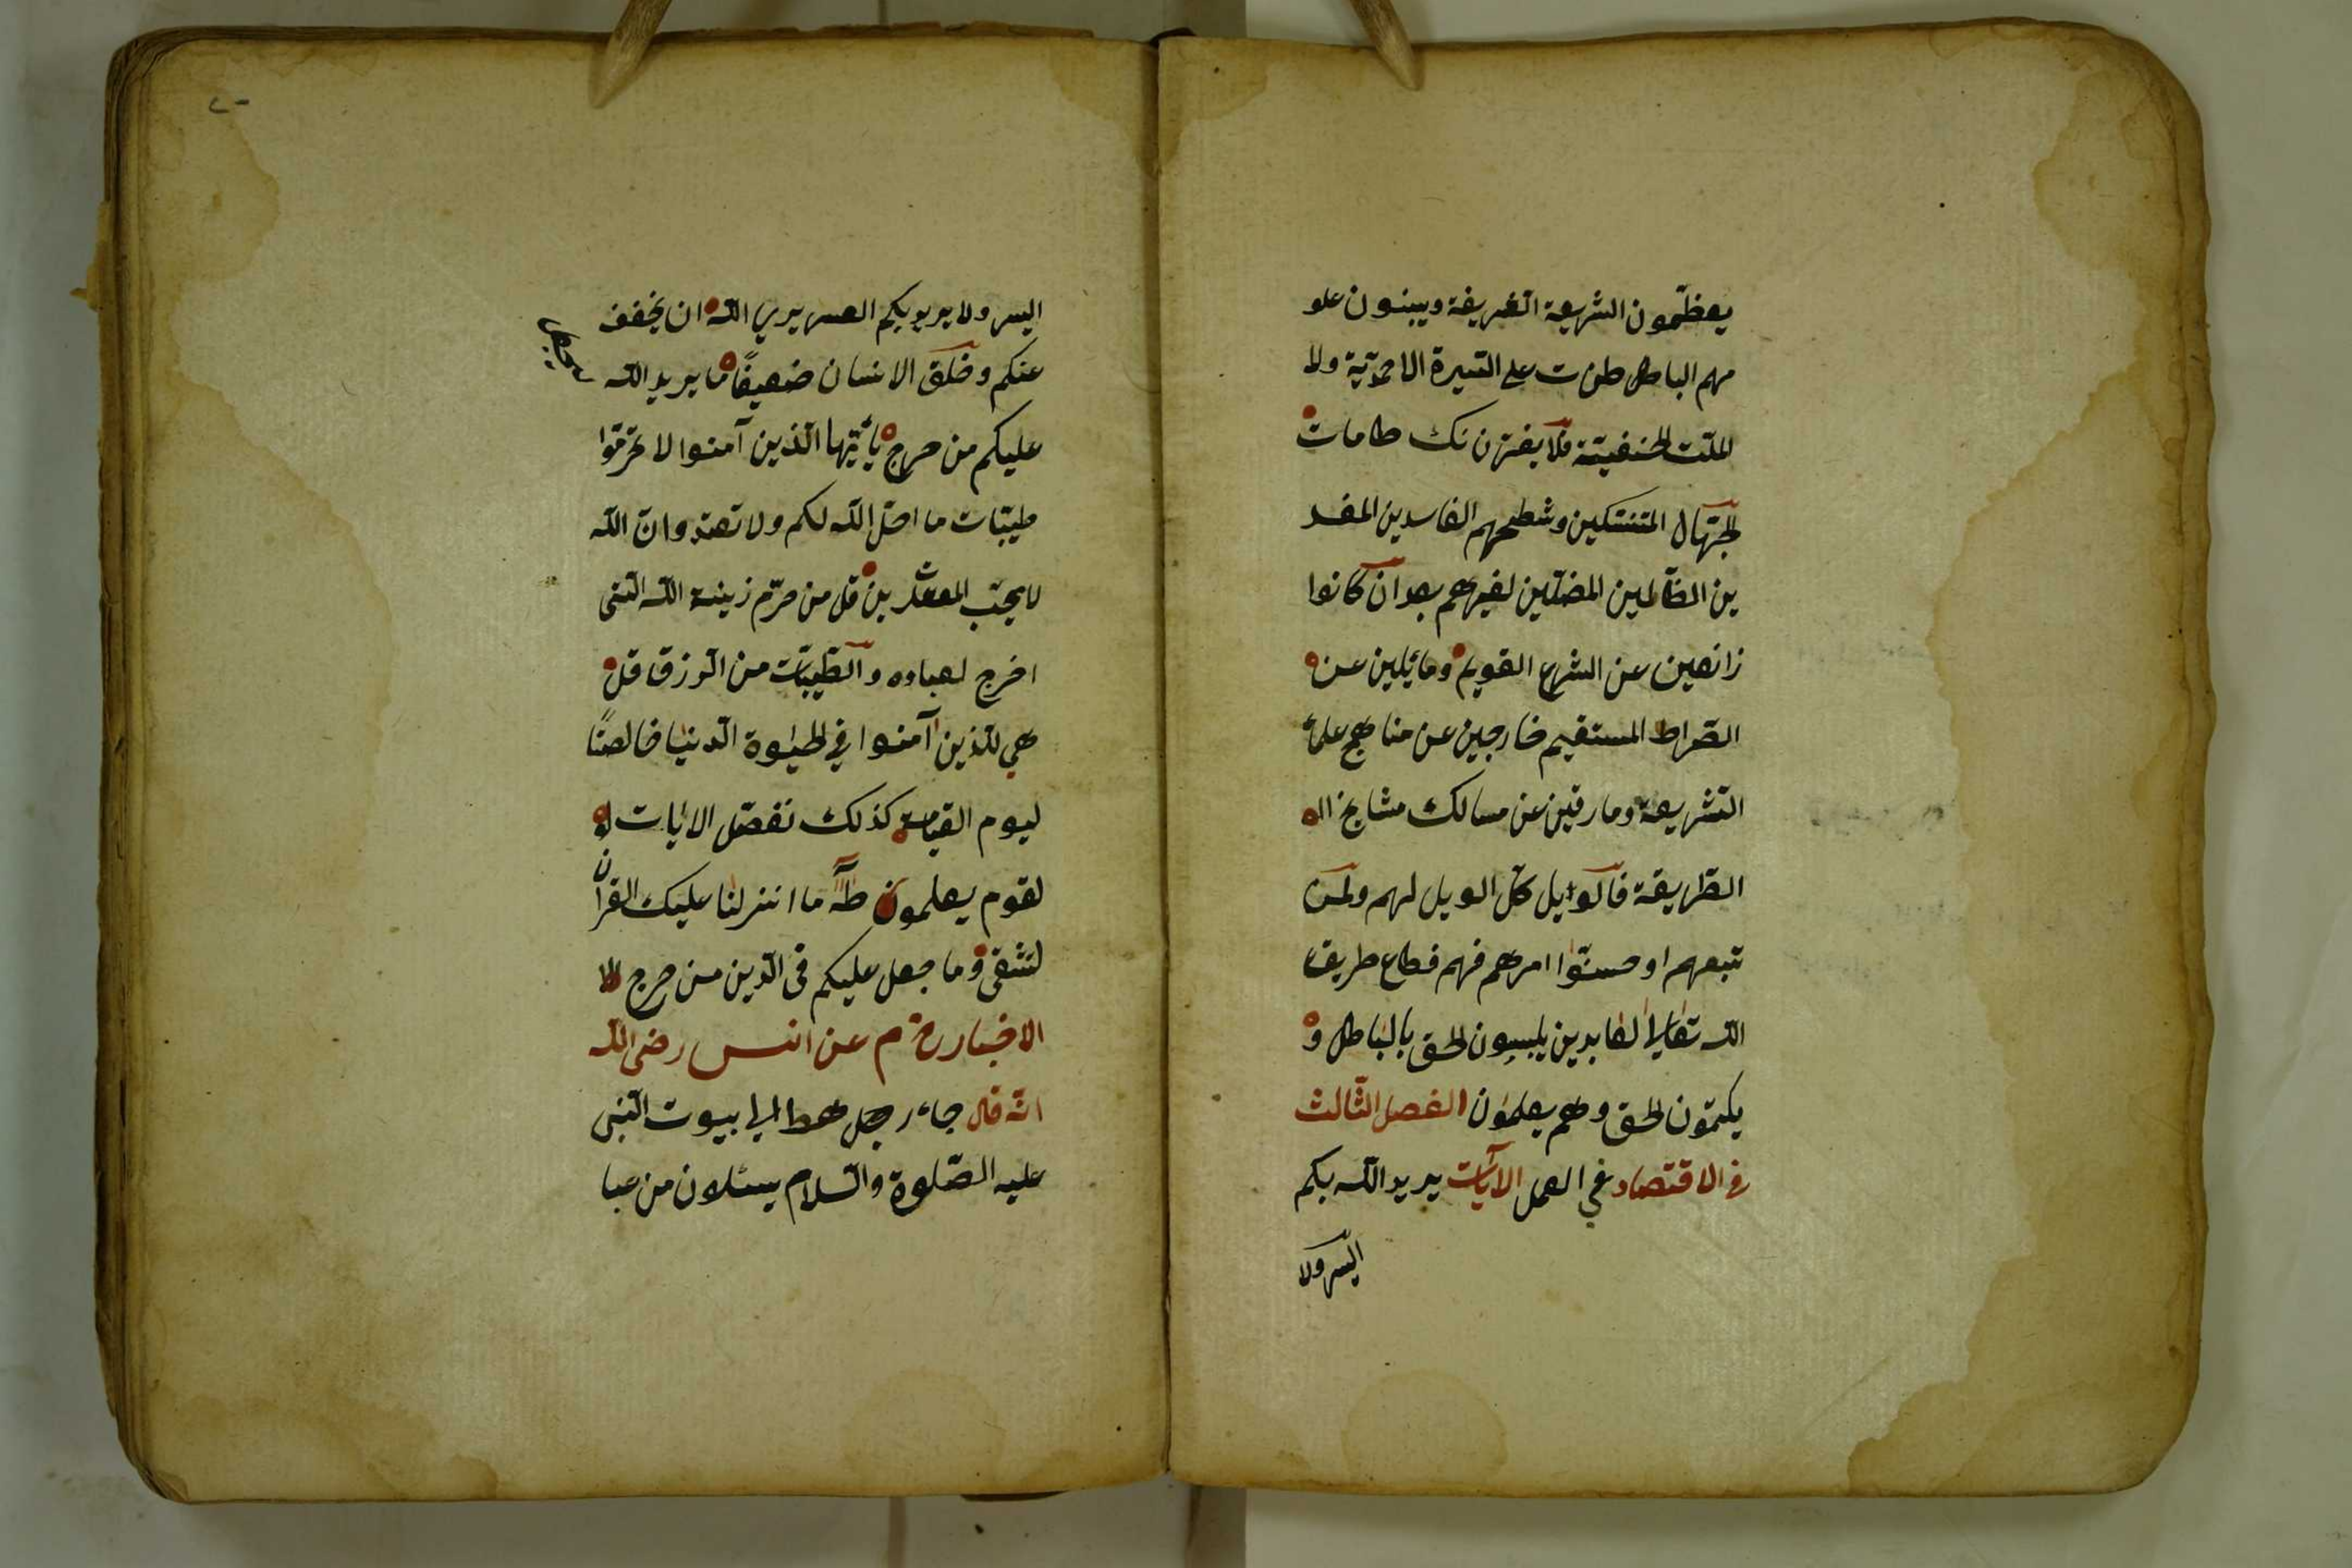 يعظّمون الشريعة الشريفة ويبنون علو
مهم الباطل طن ت على السّيرة الاحمديّة ولا
الملّت الحنفيّة فلا يغرّن نك طامات
الجهّال المتنسّكين وشطحهم الفاسدين المفسد
ين الضّالمين المضلّين لغيرهم بعد ان كانوا
زائغين عن الشرع القويم ومائلين عن
الصّراط المستقيم خارجين عن مناهج علماء
الشّريعة ومارقين عن مسالك مشايخ ال
الطّريقة فالويل كلّ الويل لهم ولمن
تبعهم او حسنّوا امرهم فهم قطاع طريق
اللّه تعالى العابدين يلبسون الحق بالباطل و
يكتمون الحق وهم يعلمون الفصل الثّالث
في الاقتصاد في العمل الآيات يريد اللّه بكم
اليسر ولا
اليسر ولا يريد بكم العسر يريد اللّه ان يخفف
عنكم وخلق الانسان ضعيفًا ما يريد اللّه
ليجعل
عليكم من حرج يأيّها الّذين آمنوا لا تحرّموا
طيّبات ما احلّ اللّه لكم ولا تعتدوا انّ اللّه
لا يحبّ المعتدين قل من حرّم زينة اللّه الّتى
اخرج لعباده والطّيّبات من الرّزق قل
هي للّذين آمنوا في الحيوة الدّنيا خالصتًا
ليوم القيامة كذلك نفصّل الايات لو
لقوم يعلمون طه ما انزلنا عليك القران
لتشقى وما جعل عليكم فى الدّين من حرج الا
الاخبار خ م عن انس رضى اللّه
انّه قال جاء رجل هط الى بيوت النّبى
عليه الصّلوة والسّلام يسئلون من عبا